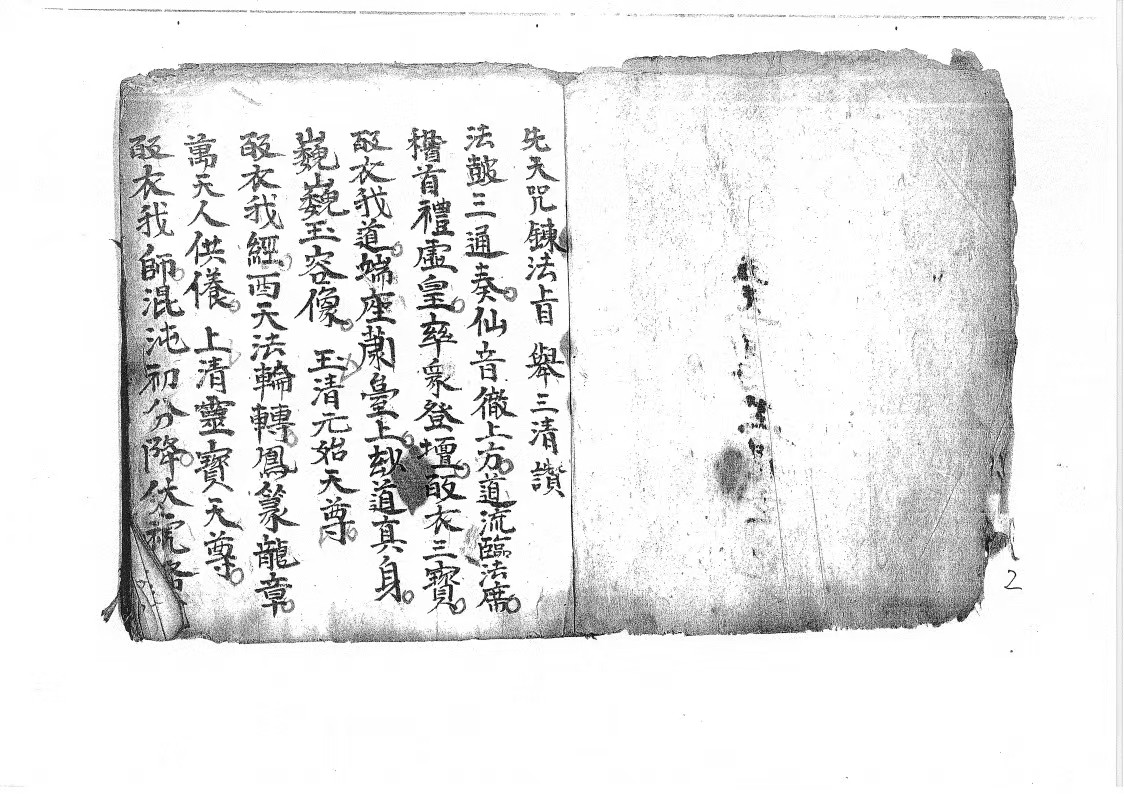 先天咒鍊法旨 舉三清讚
法鼓三通奏仙音徹上方道流臨法席
稽首禮虛皇率衆登壇皈衣三寶
皈衣我道端座蘭臺上玅道真身
巍巍玉容像 玉清元始天尊
皈衣我經西天法輪轉鳳篆龍章
萬天人供儀 上清靈寶天尊
皈衣我師混沌初分降伏
2